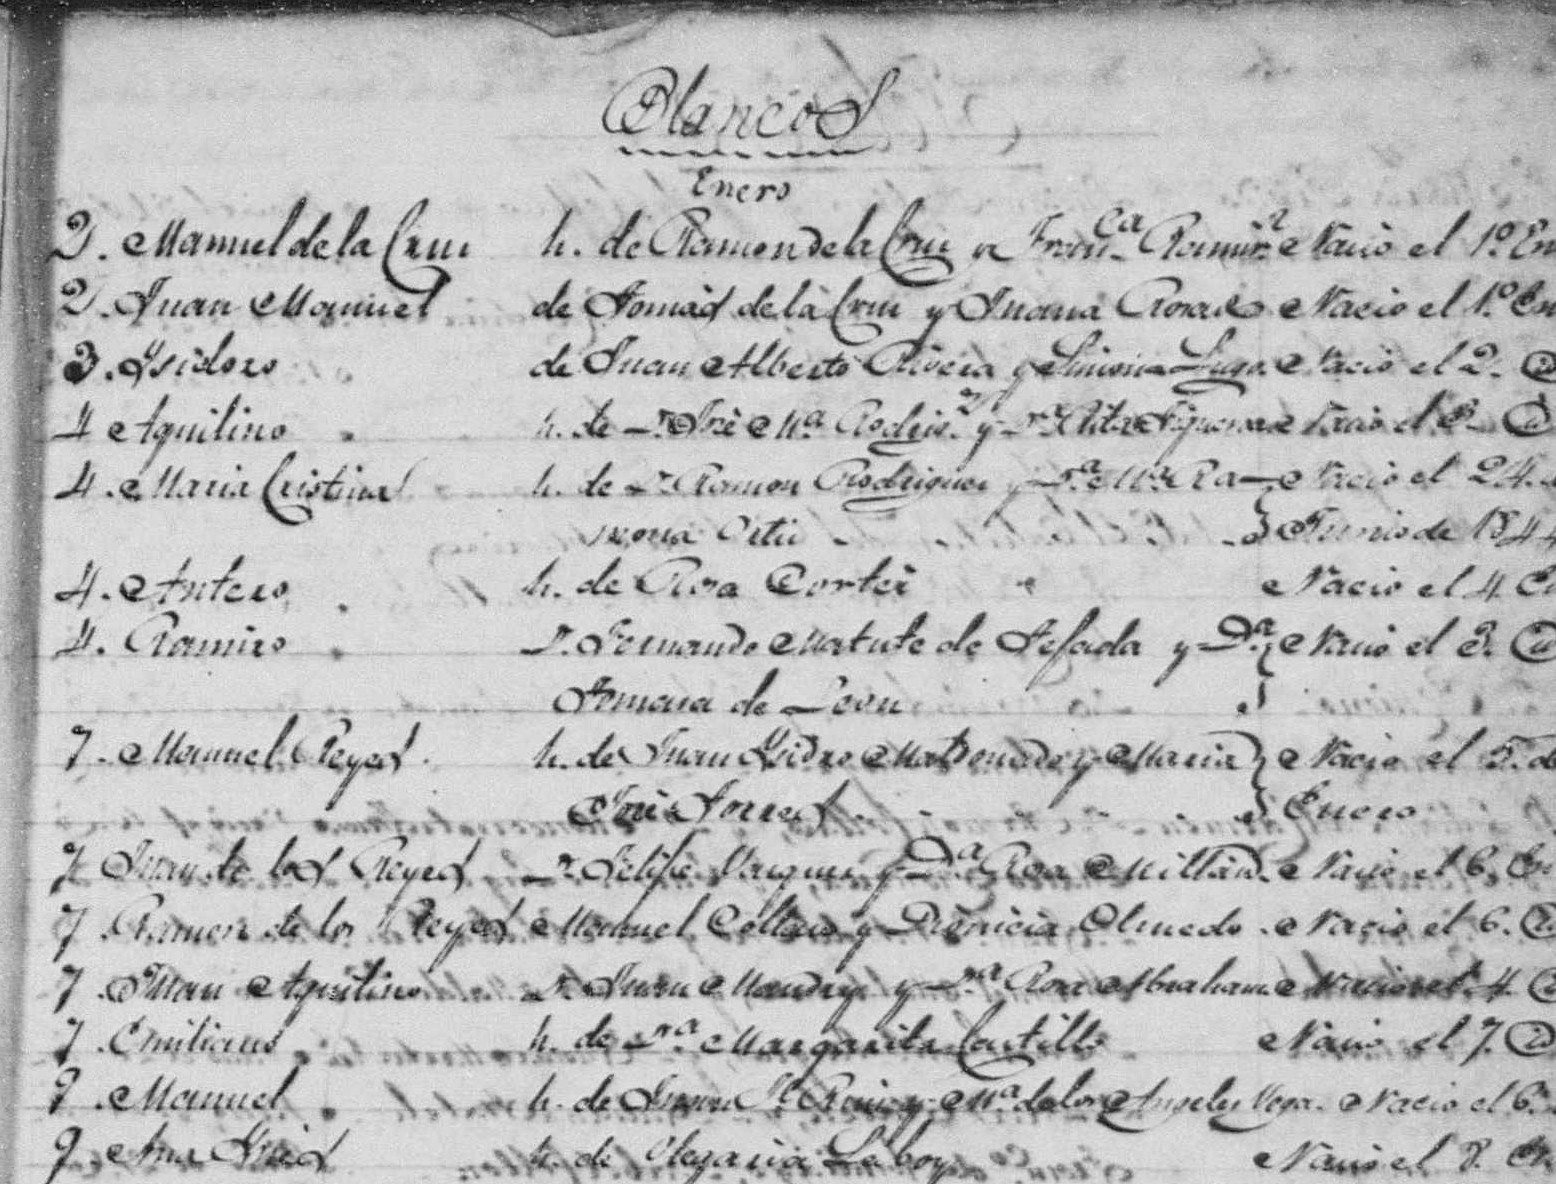 Blancos
Enero
2. Manuel de la Cruz h. de Ramon de la Cruz y Franca. Ramirz. Nacio el 1º. En
2. Juan Manuel de Tomas de la Cruz y Juana Rosas Nacio el 1º. En
3. Isidoro de Juan Alberto Rivera y Simona Lugo. Nacio el 2.
4 Aquilino h. de Dn. José Ma. Rodrigz. y Da. Rita Figueroa Nacio el 3.
4. Maria Cristina h. de Dn. Ramon Rodriguez y Da. Ma. Ra- Nacio el 24.
mona Ortiz Junio de 1844
4. Antero h. de Rosa Cortes Nacio el 4 En
4. Ramiro Dn. Fernando Matute de Tejada y Da. Nacio el 3.
Tomasa de Leon
7. Manuel Reyes. h. de Juan Isidro Maldonado y Maria Nacio el 5. de
José Torres Enero
7 Juan de los Reyes Dn. Felipe Vazquez y Da. Rosa Millan. Nacio el 6. En
7. Ramon de los Reyes Manuel Collazo y Dionicia Olmedo. Nacio el 6.
7. Juan Aquilino Dn. Juan y Da. Rosa Abraham. Nacio el 4.
7. Emiliano h. de Da. Margarita Castillo Nacio el 7.
9. Manuel h. de Juan Ruiz y Ma. de los Angeles Vega. Nacio el 6.
9 Ana Inés h. de Olegaria Laboy Nacio el 8. En